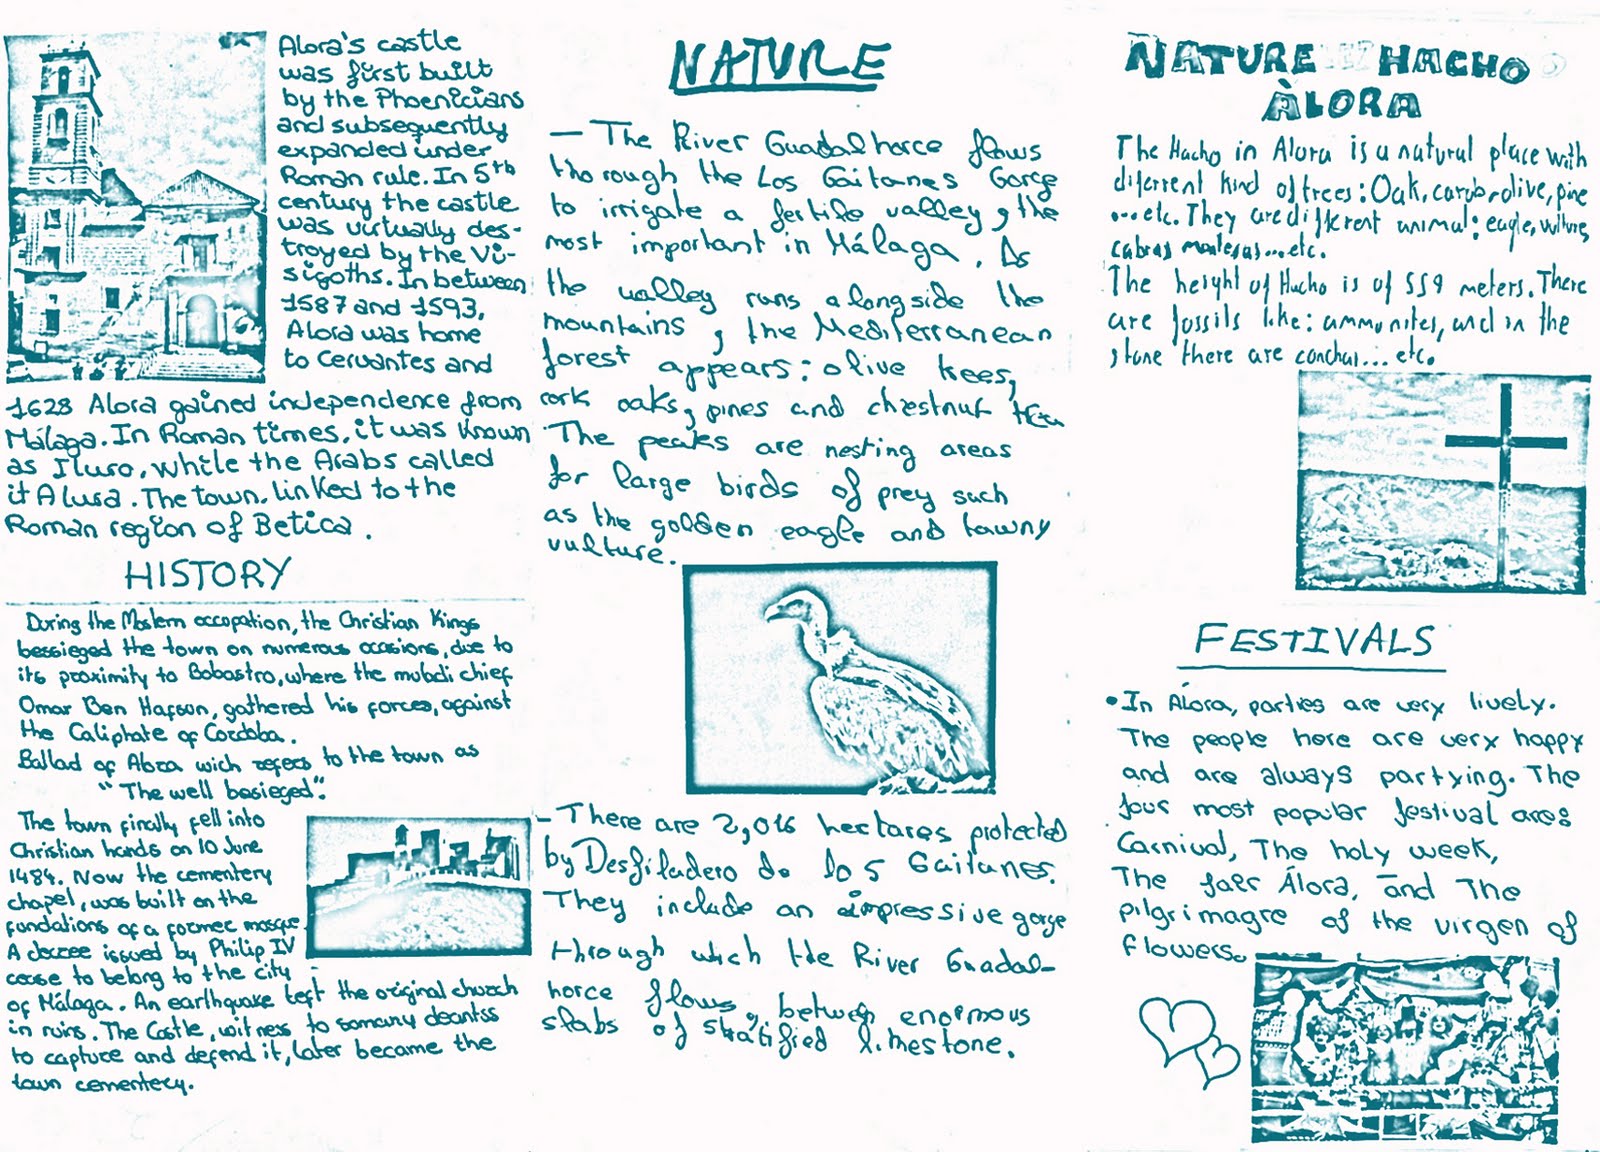 Alora's castle
was first built
by the Phoenicians
and subsequently
expanded under
Roman rule. In 5th
century the castle
was virtually des-
troyed by the Vi-
sigoths. In between
1587 and 1593,
Alora was home
to Cervantes and
1628 Alora gained independence from
Málaga. In Roman times, it was known
as Iluro, while the Arabs called
it Alura. The town, linked to the
Roman region of Betica.
HISTORY
During the Moslem occopation, the Christian Kings
bessieged the town on numerous occasions, due to
its proximity to Bobastro, where the muladi chief
Omar Ben Hafsun, gathered his forces, against
the Caliphate of Cordoba.
Ballad of Alora wich refers to the town as
"The well besieged".
The town finally fell into
Christian hands on 10 June
1484. Now the cementery
chapel, was built on the
fundations of a former mosque.
A decree issued by Philip IV
cease to belong to the city
of Málaga. An earthquake left the original church
in ruins. The Castle, witness to somany
to capture and defend it, later became the
town cementery.
NATURE
- The River Guadalhorce flows
thorough the Los Gaitanes Gorge
to irrigate a fertile valley, the
most important in Málaga. As
the valley runs alongside the
mountains, the Mediterranean
forest appears: olive trees,
cork oaks, pines and chestnut
The peaks are nesting areas
for large birds of prey such
as the golden eagle and tawny
vulture.
- There are 2,016 hectares protected
by Desfiladero de lo 5 Gaitanes.
They include an impressive gorge
through wich the River Guadal-
horce flows, between enormous
slabs of stratified limestone.
NATURE HACHO
ÀLORA
The Hacho in Alora is a natural place with
diferrent kind of trees: Oak, carob, olive, pine
...etc. They are different animal: eagle, vulture,
cabras montesas...etc.
The height of Hacho is of 559 meters. There
are fossils like: ammonites, and in the
stone there are conchas... etc.
FESTIVALS
• In Álora, parties are very lively.
The people here are very happy
and are always partying. The
four most popular festival are:
Carnival, The holy week,
The faer Álora, and The
pilgrimagre of the virgen of
flowers.